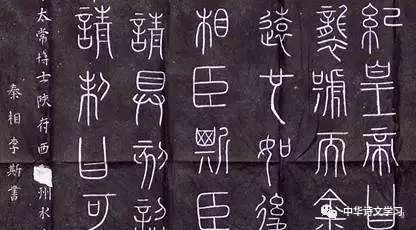 紀皇帝曰
襲號而金
遠也如後
相臣斯臣
請具刻詔
請制曰可
太常博士陝府西州水
秦相李斯書
中华诗文学习